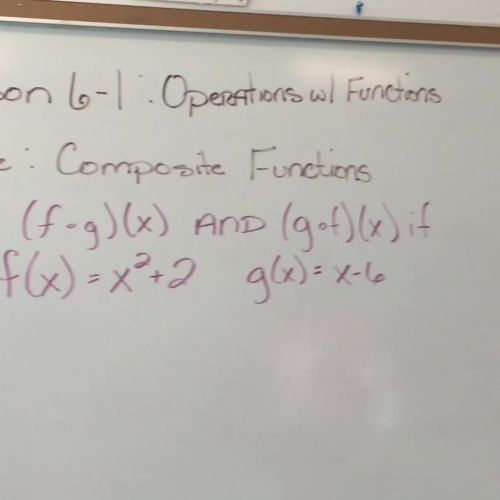 on 6-1: Operations w/ Functions
: Composite Functions
(f∘g)(x) AND (g∘f)(x) if
f(x) = x²+2 g(x) = x-6